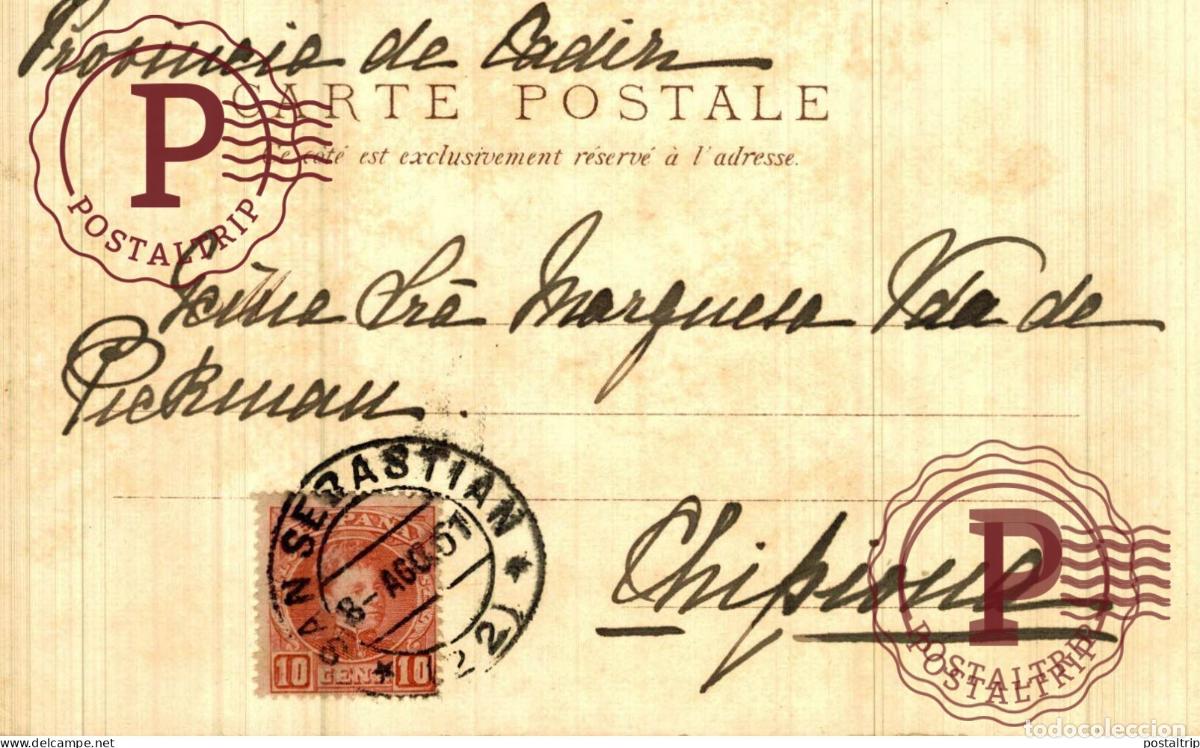 Provincia de Cadiz
CARTE POSTALE
Ce côté est exclusivement réservé à l'adresse.
P
POSTALTRIP
Exima Srã Marquesa Vda de
Pickman.
SAN SEBASTIAN
8-AGO.
(22)
ESPAÑA
10 CENT. 10
Chipiona
P
POSTALTRIP
POSTALTRIP
todocoleccion
www.delcampe.net
postaltrip